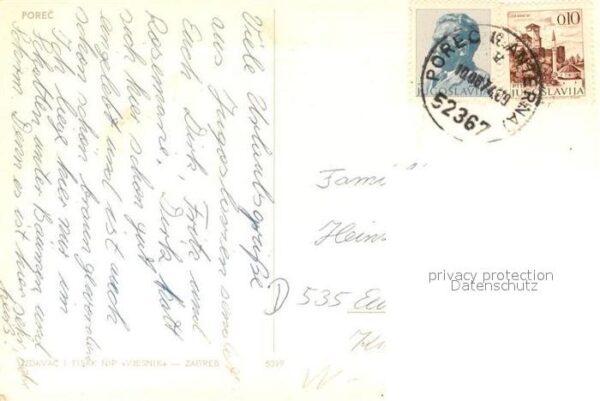 POREČ
Viele Urlaubsgrüße
aus Jugoslavien sendet
Euch Dirk, Fritz und
Rosemarie. Dirk hat
sich hier schon gut
eingelebt und ist auch
schon schön braun geworden
Ich liege hier nur im
Schatten unter Bäumen und
Schirm. Denn es ist hier sehr
heiß.
IZDAVAČ I TISAK NIP «VJESNIK» — ZAGREB 5099
JUGOSLAVIJA
0,10
JUGOSLAVIJA
POREČ
52367
Fami
Hein
535 Eu
W-
privacy protection
Datenschutz